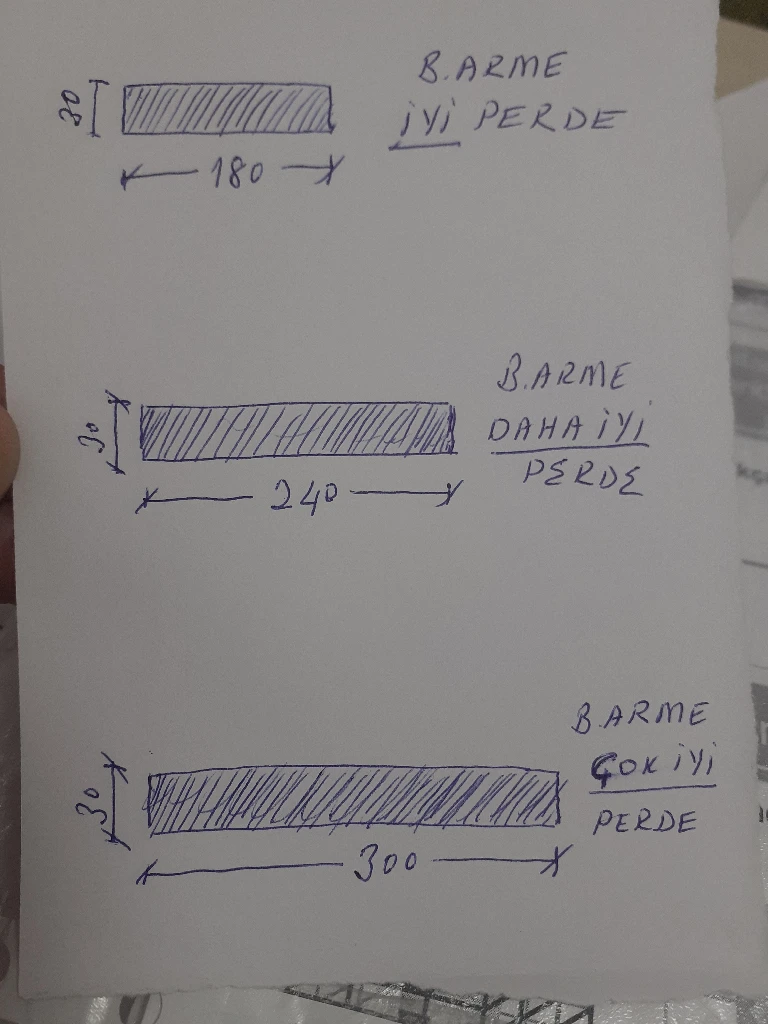 B.ARME
30
İYİ PERDE
180
B.ARME
30
DAHA İYİ
PERDE
240
B.ARME
ÇOK İYİ
30
PERDE
300